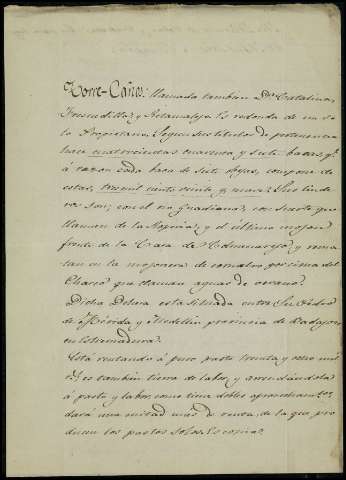 Torre-Caños: llamada tambien Dª Catalina,
Fresnedilla, y Retamalejo. Es redonda de un so
lo Propietario. Segun sus titulos de pertenencia
hace cuatrocientas cuarenta y siete bacas, qe
á razon cada baca de siete obejas, compone de
estas, tres mil ciento veinte y nueve. Sus linde
ros son; con el rio Guadiana, con suerte que
llaman de la y el ultimo mojon
frente de la Casa de y rema
tan en la mojonera de por cima del
Charco que llaman aguas de verano.
Dicha Dehesa está situada entre Ciudades
de Mérida y Medellin provincia de Badajoz
en Estremadura.
Está rentando á puro pasto treinta y ocho mil
rs. y es tambien tierra de labor, y arrendándola
á pasto y labor, como tiene dobles aprovechamtos
dará una mitad mas de renta, de la que pro
ducen los pastos solos. Es copia.